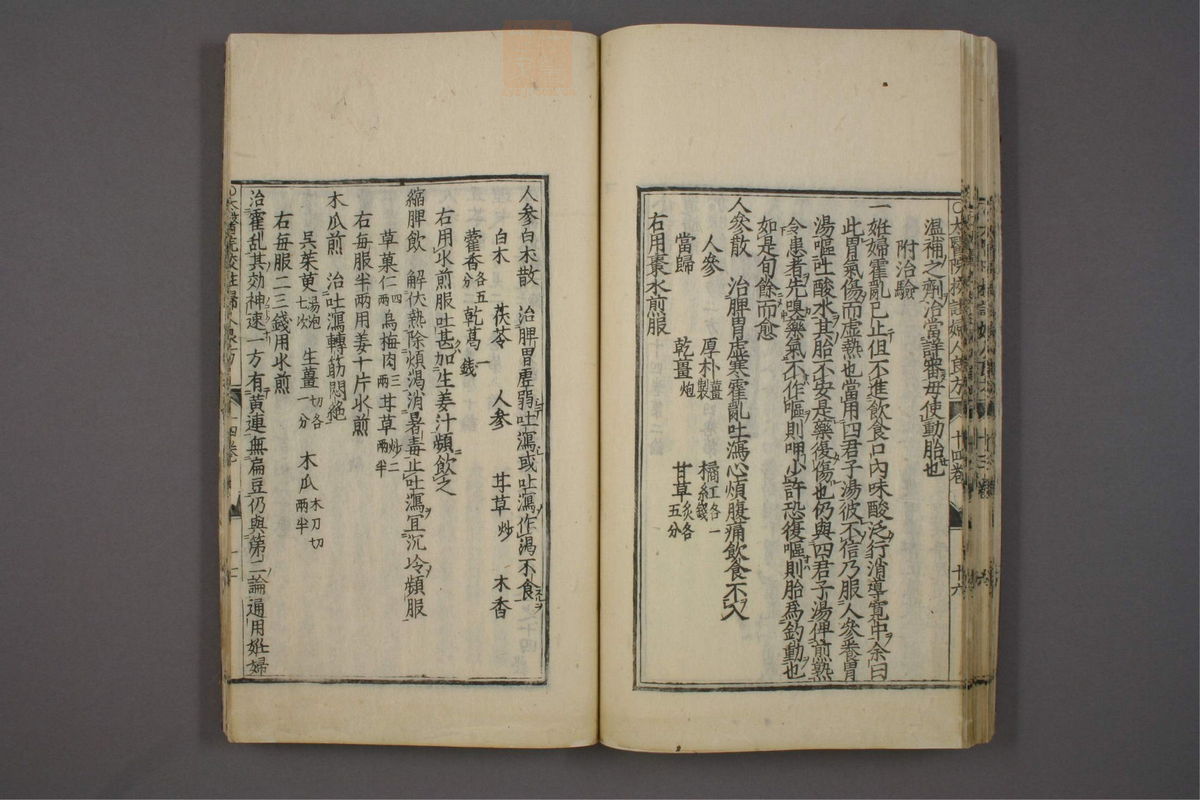 溫補之劑治當詳審毋使動胎也
附治驗
一姙婦霍亂已止但不進飲食口內味酸泛行消導寬中余曰
此胃氣傷而虛熱也當用四君子湯彼不信乃服人參養胃
湯嘔吐酸水其胎不安是藥復傷也仍與四君子湯俾煎熟
令患者先嗅藥氣不作嘔則呷少許恐復嘔則胎為釣動也
如是旬餘而愈
人參散　治脾胃虛寒霍亂吐瀉心煩腹痛飲食不入
人參　厚朴薑製　橘紅各一錢
當歸　乾薑炮　甘草炙各五分
右用棗水煎服
十四卷　十六
人參白朮散　治脾胃虛弱吐瀉或吐瀉作渴不食
白朮　茯苓　人參　甘草炒　木香
藿香各五分　乾葛一錢
右用水煎服吐甚加生姜汁頻飲之
縮脾飲　解伏熱除煩渴消暑毒止吐瀉宜沉冷頻服
草菓仁四兩　烏梅肉三兩　甘草炒二兩半
右每服半兩用姜十片水煎
木瓜煎　治吐瀉轉筋悶絶
吳茱萸湯炮七次　生薑切各一分　木瓜木刀切兩半
右每服二三錢用水煎
治霍乱其効神速一方有黃連無扁豆仍與第二論通用姙婦